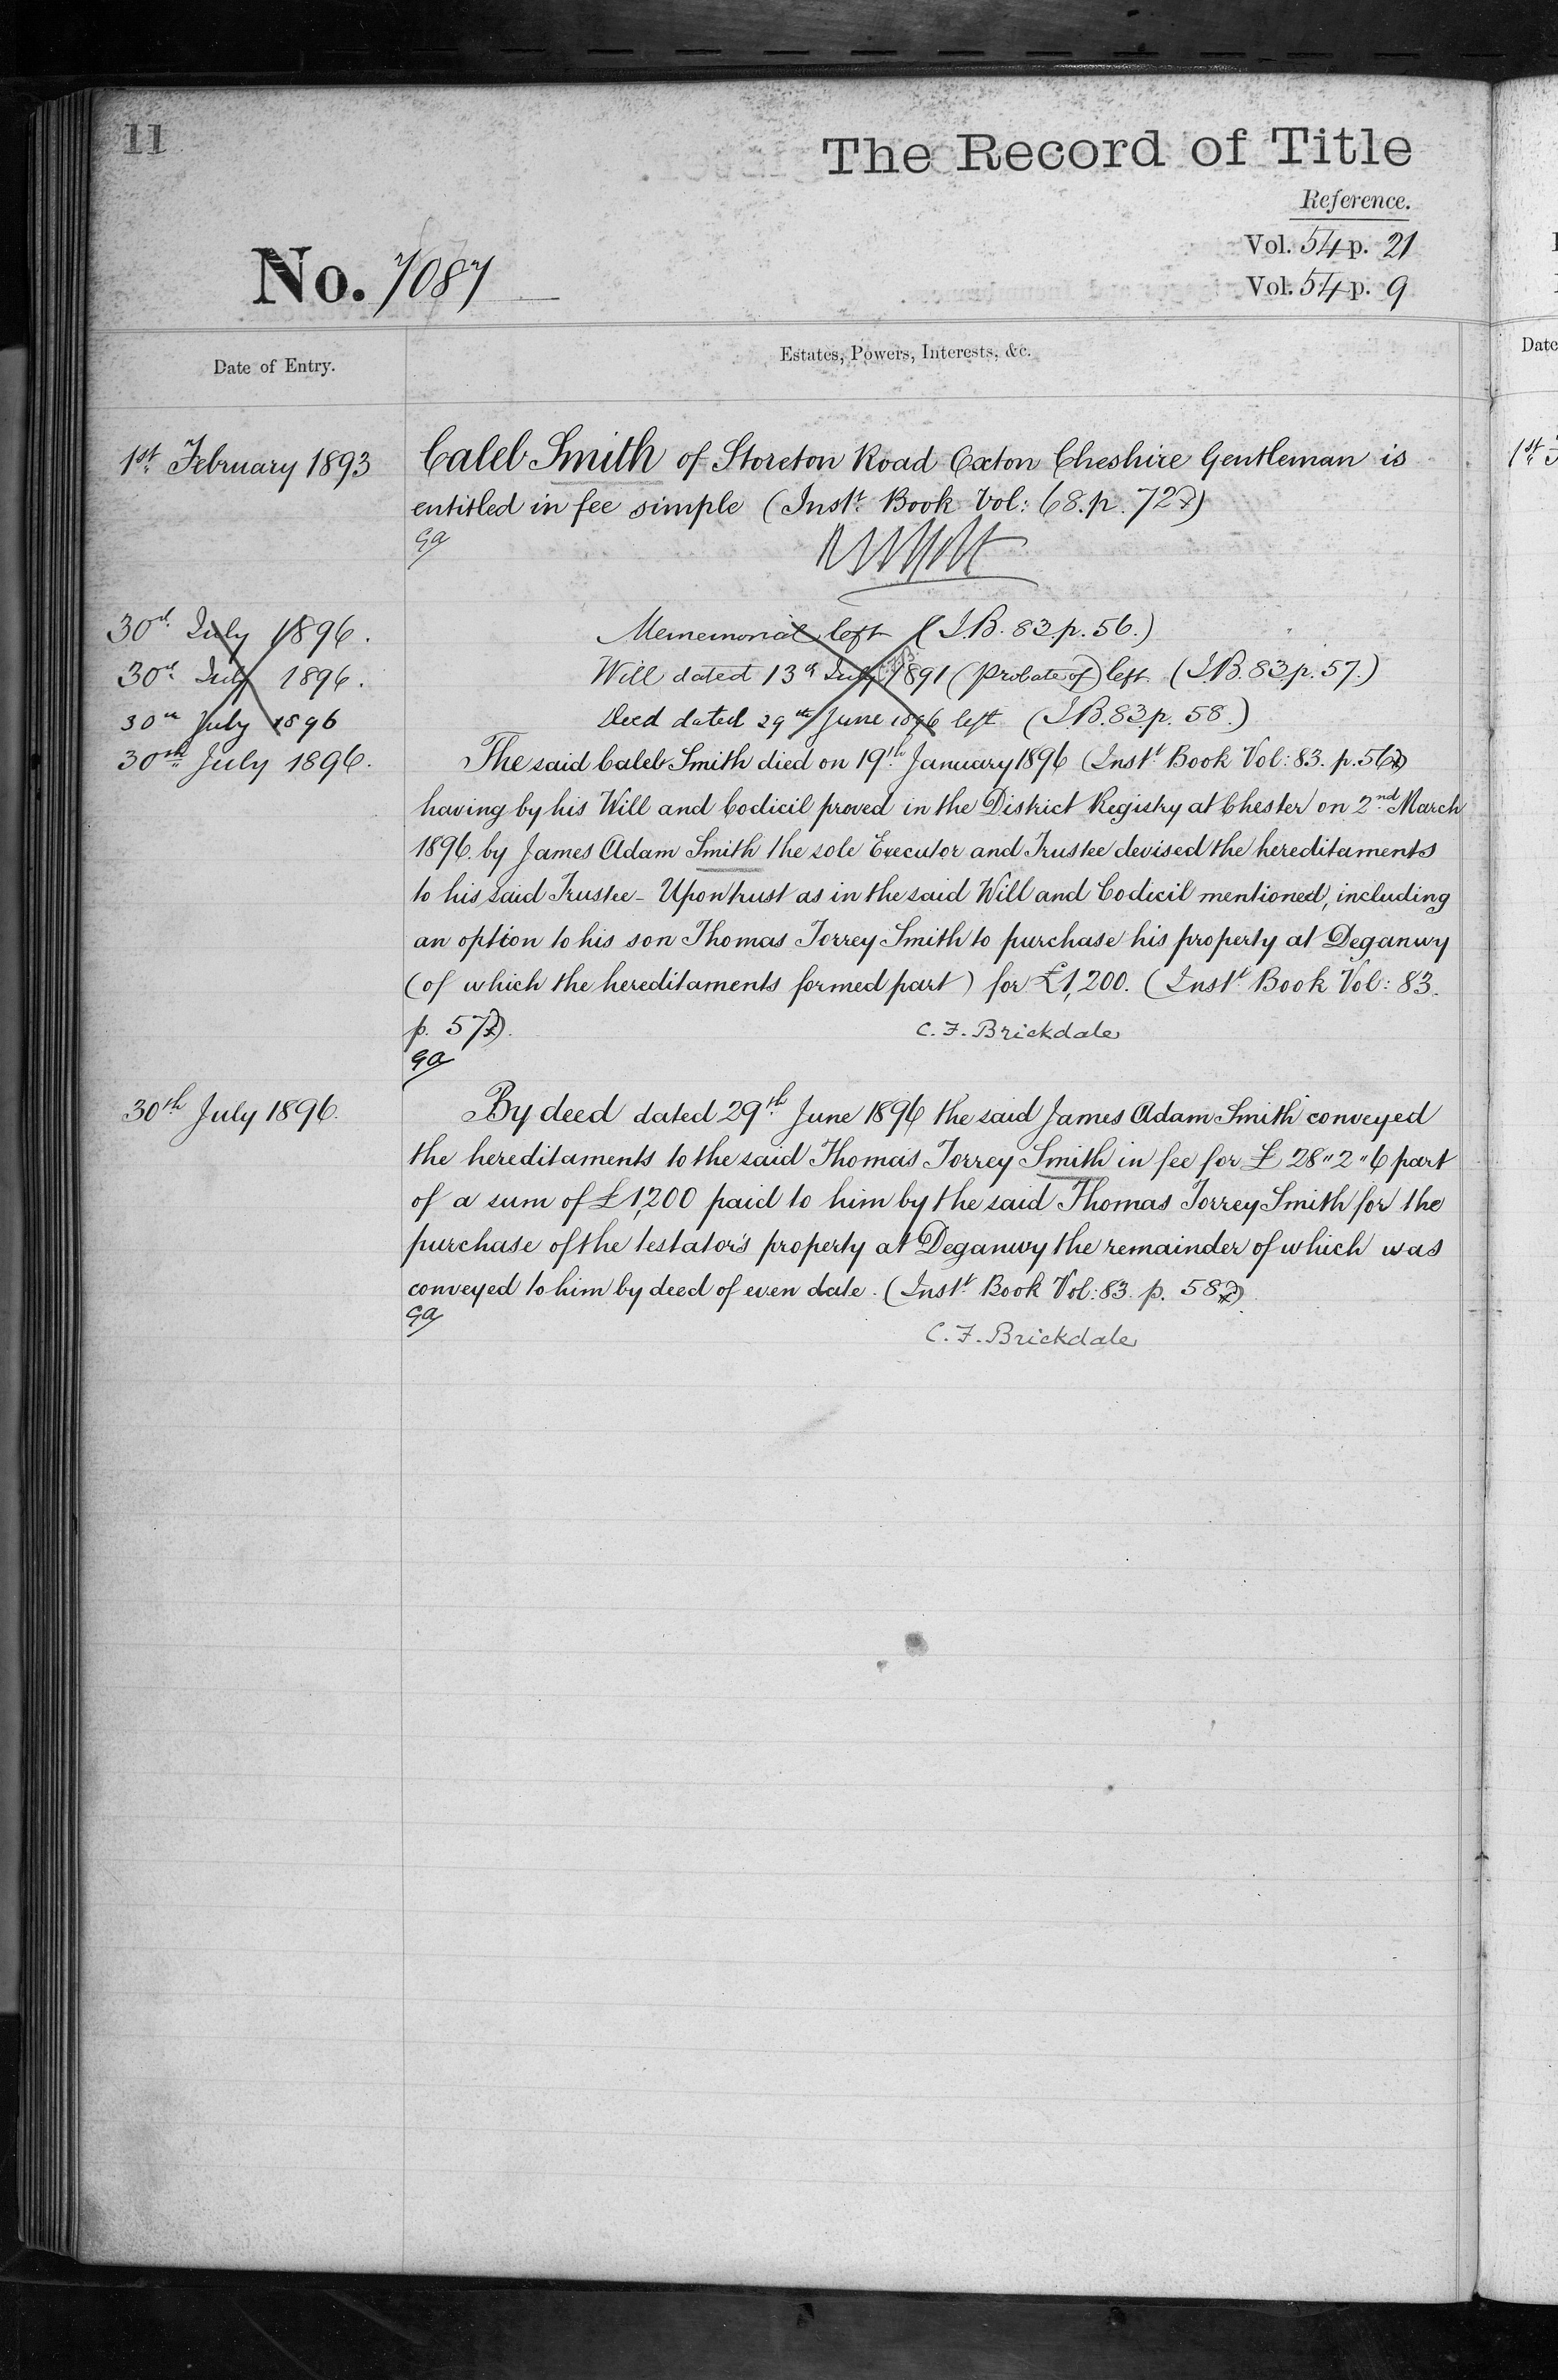 11
The Record of Title
Reference.
Vol. 54 p. 21
No. 7087
Vol. 54 p. 9
Date of Entry.
Estates, Powers, Interests, &c.
Date
1st February 1893
Caleb Smith of Storeton Road Oxton Cheshire Gentleman is
1st
entitled in fee simple (Instt Book Vol: 68. p. 72)
ga
30th July 1896.
Mememorial left (I.B. 83. p. 56.)
30th July 1896.
Will dated 13th July 1891 (Probate of) left (I.B. 83. p. 57.)
30th July 1896
Deed dated 29th June 1896 left (I.B. 83. p. 58.)
30th July 1896.
The said Caleb Smith died on 19th January 1896 (Instt Book Vol: 83. p. 56)
having by his Will and Codicil proved in the District Registry at Chester on 2nd March
1896. by James Adam Smith the sole Executor and Trustee devised the hereditaments
to his said Trustee - Upon trust as in the said Will and Codicil mentioned, including
an option to his son Thomas Torrey Smith to purchase his property at Deganwy
(of which the hereditaments formed part) for £1,200. (Instt Book Vol: 83.
p. 57).
C. F. Brickdale
ga
30th July 1896.
By deed dated 29th June 1896 the said James Adam Smith conveyed
the hereditaments to the said Thomas Torrey Smith in fee for £28"2"6 part
of a sum of £1,200 paid to him by the said Thomas Torrey Smith for the
purchase of the testator's property at Deganwy the remainder of which was
conveyed to him by deed of even date. (Instt Book Vol: 83. p. 58)
ga
C. F. Brickdale